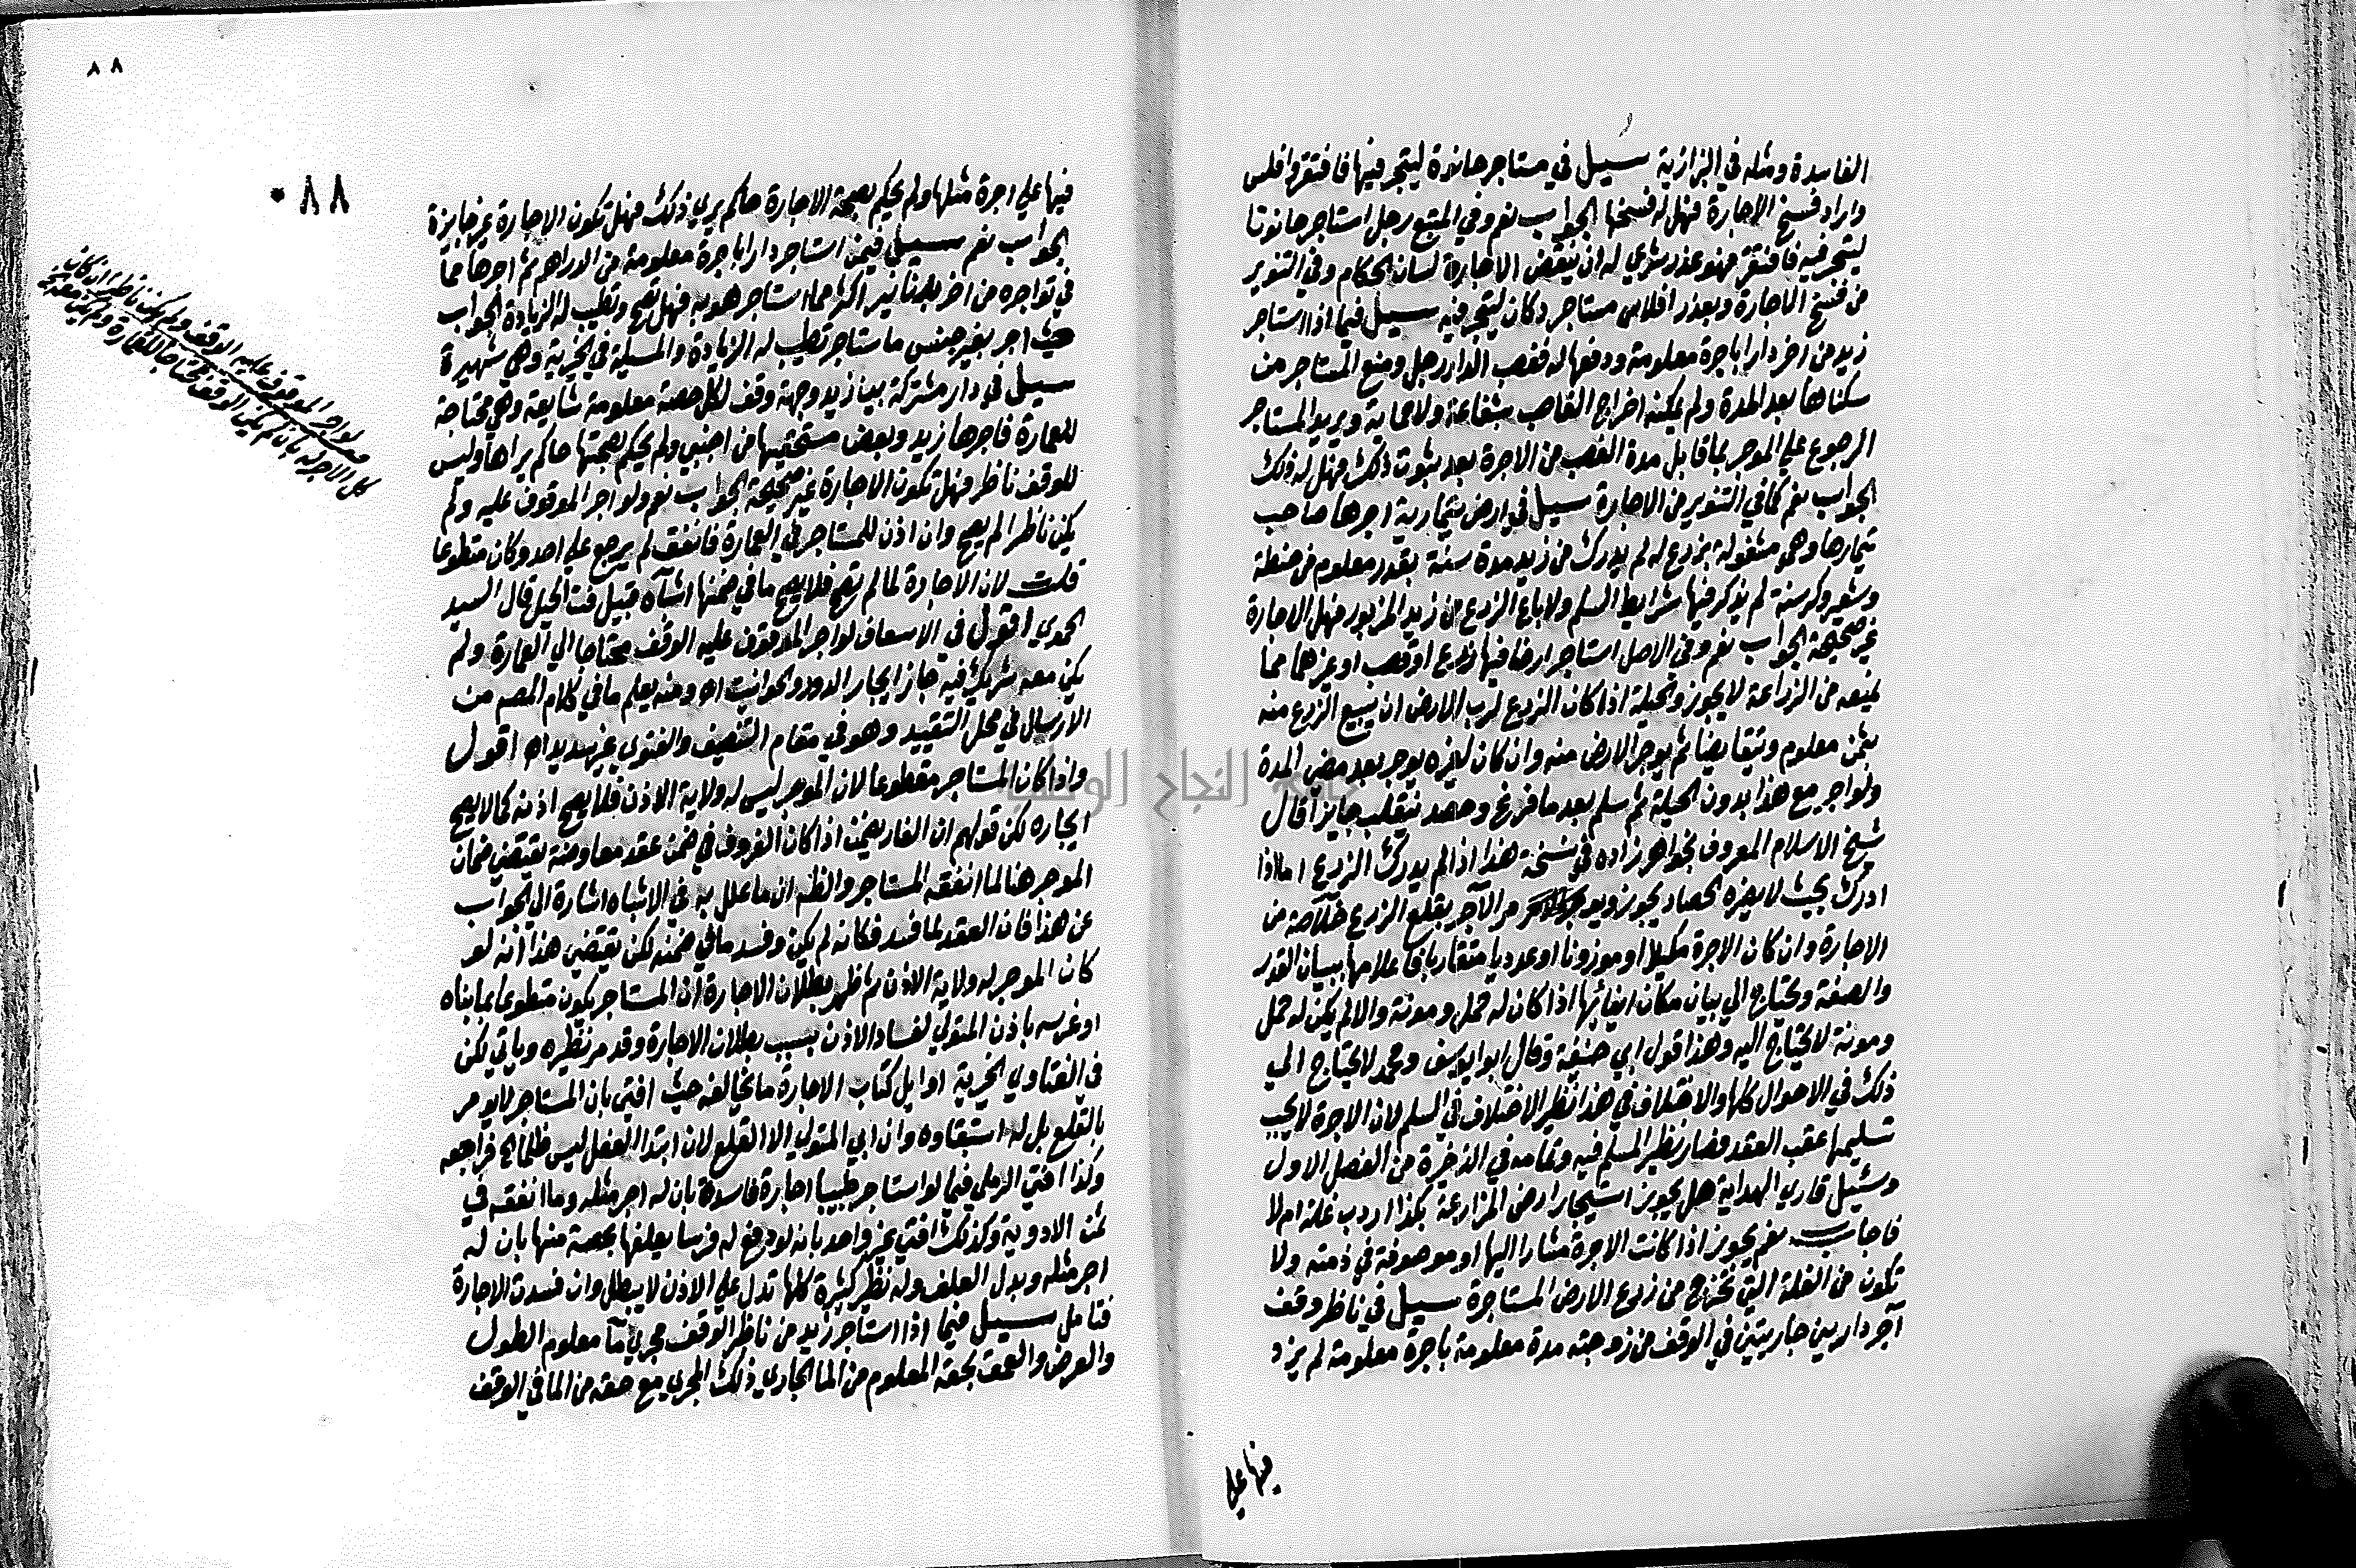 الفاسدة ومثله في البزازية سيل في مستاجر حانوة ليتجر فيها فافتقر وافلس
واراد فسخ الاجارة فهل له فسخها الجواب نعم وفي المنبع رجل استاجر حانوتا
ليتجر فيه فافتقر فهو عذر شرعي له ان ينقض الاجارة لسان الحكام وفي التنوير
من فسخ الاجارة وبعذر افلاس مستاجر دكان ليتجر فيه سيل فيما اذا استاجر
زيد من اخر دارا باجرة معلومة ودفعها له فغصب الدار رجل ومنع المستاجر من
سكناها بعد المدة ولم يمكنه اخراج الغاصب بشفاعة ولا حماية ويريد المستاجر
الرجوع علي الموجر بما قابل مدة الغصب من الاجرة بعد ثبوت ذلك فهل له ذلك
الجواب نعم كما في التنوير من الاجارة سيل في ارض تيمارية اجرها صاحب
تيمارها وهي مشغولة بزرع له لم يدرك من زيد مدة سنة بقدر معلوم من حنطة
وشعير وكرسنة لم يذكر فيها شرايط السلم ولا باع الزرع من زيد المزبور فهل الاجارة
غير صحيحة الجواب نعم وفي الاصل استاجر ارضا فيها زرع او قصب او غيرهما مما
يمنعه من الزراعة لا يجوز والحيلة اذا كان الزرع لرب الارض ان يبيع الزرع منه
بثمن معلوم ويتقابضا ثم يوجر الارض منه وان كان لغيره يوجر بعد مضي المدة
ولو اجر مع هذا بدون الحيلة ثم سلم بعد ما فرغ وحصد ينقلب جايزا قال
شيخ الاسلام المعروف بخواهر زاده في نسخة هذا اذا لم يدرك الزرع اما اذا
ادرك بحيث لا يضره الحصاد يجوز ويومر الآجر بقلع الزرع خلاصة من
الاجارة وان كان الاجرة مكيلا او موزونا او عدديا متقاربا فاعلامها ببيان القدر
والصفة ويحتاج الي بيان مكان ايفائها اذا كان له حمل ومونة والا لم يكن له حمل
ومونة لا يحتاج اليه وهذا قول ابي حنيفة وقال ابو يوسف ومحمد لا يحتاج الي
ذلك في الاحوال كلها والاختلاف في هذا نظير الاختلاف في السلم لان الاجرة لا يجب
تسليمها عقب العقد فصار نظير المسلم فيه وتمامه في الذخيرة من الفصل الاول
وسئيل قاري الهداية هل يجوز استيجار ارض المزارعة بكذا اردب غلة ام لا
فاجاب نعم يجوز اذا كانت الاجرة مشارا اليها او موصوفة في ذمته ولا
تكون من الغلة التي تخرج من زرع الارض المستاجرة سيل في ناظر وقف
آجر دارين جاريتين في الوقف من زوجته مدة معلومة باجرة معلومة لم يزد
فيها علي
٨٨
٨٨
فيها علي اجرة مثلها ولم يحكم بصحة الاجارة حاكم يري ذلك فهل تكون الاجارة غير جايزة
الجواب نعم سيل فيمن استاجر دارا باجرة معلومة من الدراهم ثم اجرها مما
في تواجره من اخر بدنانير اكثر مما استاجر هو به فهل تصح وتطيب له الزيادة الجواب
حيث اجر بغير جنس ما استاجر تطيب له الزيادة والمسيلة في الخيرية وهي شهيرة
سيل في دار مشتركة بين زيد وجهة وقف لكل حصة معلومة شايعة وهي محتاجة
للعمارة فاجرها زيد وبعض مستحقيها من اجنبي ولم يحكم بصحتها حاكم يراها وليس
للوقف ناظر فهل تكون الاجارة غير صحيحة الجواب نعم ولو اجر الموقوف عليه ولم
يكن ناظرا لم يصح وان اذن للمستاجر في العمارة فانفق لم يرجع علي احد وكان متطوعا
قلت لان الاجارة لما لم تصح فلا يصح ما في ضمنها اشباه قبيل فن الحيل قال السيد
الحموي اقول في الاسعاف لو اجر الموقوف عليه الوقف محتاجا الي العمارة ولم
يكن معه شريك فيه جاز ايجار الدور والحوانيت اه ومنه يعلم ما في كلام المصم من
الارسال في محل التقييد وهو في مقام التصنيف والفتوي غير سديد اه اقول
واذا كان المستاجر متطوعا لان الموجر ليس له ولاية الاذن فلا يصح اذنه كما لا يصح
ايجاره لكن قولهم ان الغار يضمن اذا كان الغرور في ضمن عقد معاوضة يقتضي ضمان
الموجر هنا لما انفقه المستاجر والظ ان ما علل به في الاشباه اشارة الي الجواب
عن هذا فان العقد لما فسد فكانه لم يكن وفسد ما في ضمنه لكن يقتضي هذا انه لو
كان الموجر له ولاية الاذن ثم ظهر بطلان الاجارة ان المستاجر يكون متطوعا بما بناه
او غرسه باذن المتولي لفساد الاذن بسبب بطلان الاجارة وقد مر نظيره وياتي لكن
في الفتاوي الخيرية اوايل كتاب الاجارة ما يخالفه حيث افتي بان المستاجر لا يومر
بالقلع بل له استبقاوه وان ابي المتولي الا القلع لان ابتدا الفعل ليس ظلما الخ فراجعه
وكذا افتي الرملي فيما لو استاجر طبيبا اجارة فاسدة بان له اجر مثله وما انفقه في
ثمن الادوية وكذلك افتي غير واحد بانه لو دفع له فرسا يعلفها بحصة منها بان له
اجر مثله وبدل العلف وله نظير كثيرة كلها تدل علي الاذن لا يبطل وان فسدت الاجارة
فتامل سيل فيما اذا استاجر زيد من ناظر الوقف مجري مآ معلوم الطول
والعرض والعمق بحقه المعلوم من الما الجاري ذلك المجري مع حقه من الما في الوقف
لو اجر الموقوف عليه الوقف ولم يكن ناظرا ان كان
كل الاجر له بان لم يكن الوقف محتاجا للعمارة ولم يكن معه